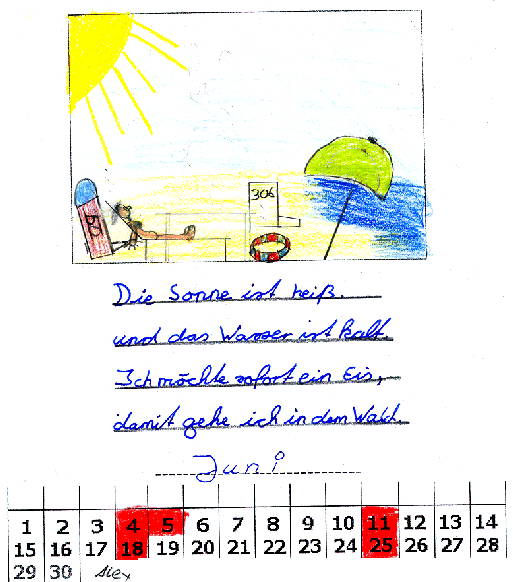 306
Die Sonne ist heiß.
und das Wasser ist kalt.
Ich möchte sofort ein Eis,
damit gehe ich in den Wald.
Juni
1 2 3 4 5 6 7 8 9 10 11 12 13 14
15 16 17 18 19 20 21 22 23 24 25 26 27 28
29 30 Alex